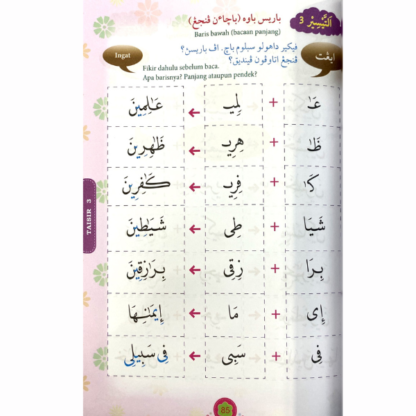 اَلتَّيْسِيْر 3
باريس باوه (باچاءن ڤنجڠ)
Baris bawah (bacaan panjang)
Ingat
ايڠت
فيكير داهولو سبلوم باچ. اڤ باريسن؟
ڤنجڠ اتاوڤون ڤينديق؟
Fikir dahulu sebelum baca.
Apa barisnya? Panjang ataupun pendek?
عَا + لِمِي ← عَالِمِينَ
ظَا + هِرِي ← ظَاهِرِينَ
كَا + فِرِي ← كَافِرِينَ
شَيَا + طِي ← شَيَاطِينَ
بِرَا + زِقِي ← بِرَازِقِينَ
إِي + مَا ← إِيمَانِهَا
فِي + سَبِي ← فِي سَبِيلِي
TAISIR 3
85